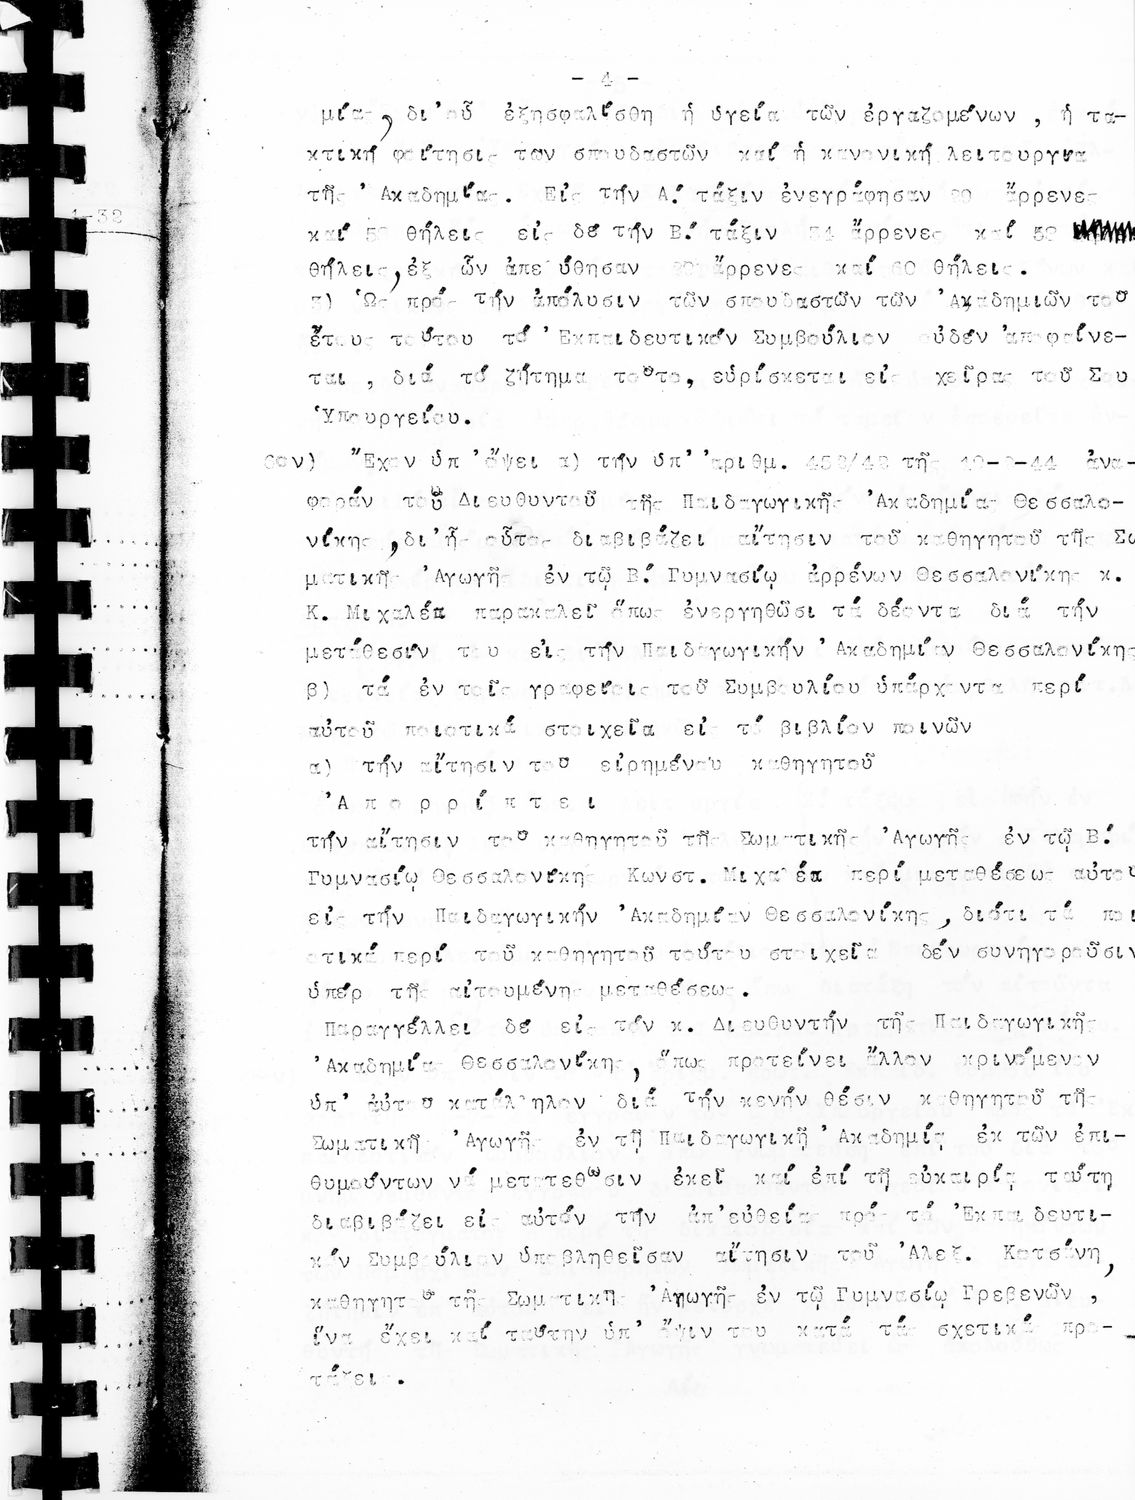 - 4 -
μίας, δι' οὗ ἐξησφαλίσθη ἡ ὑγεία τῶν ἐργαζομένων , ἡ τα-
κτική φοίτησις των σπουδαστῶν καί ἡ κανονική λειτουργία
τῆς 'Ακαδημίας. Εἰς τήν Α.' τάξιν ἐνεγράφησαν ἄρρενες
καί θήλεις εἰς δέ τήν Β.' τάξιν ἄρρενες καί 52
θήλεις, ἐξ ὧν ἀπελύθησαν ἄρρενες καί 60 θήλεις.
'Ως πρός τήν ἀπόλυσιν τῶν σπουδαστῶν τῶν 'Ακαδημιῶν τοῦ
ἔτους τούτου τό 'Εκπαιδευτικόν Συμβούλιον οὐδέν ἀποφαίνε-
ται , διά τό ζήτημα τοῦτο, εὑρίσκεται εἰς χεῖρας τοῦ Σου
'Υπουργείου.
"Εχον ὑπ' ὄψει α) τήν ὑπ' ἀριθμ. τῆς ἀνα-
φοράν τοῦ Διευθυντοῦ τῆς Παιδαγωγικῆς 'Ακαδημίας Θεσσαλο-
νίκης ,δι' ἧς οὗτος διαβιβάζει αἴτησιν τοῦ καθηγητοῦ τῆς Σω
ματικῆς 'Αγωγῆς ἐν τῷ Β.' Γυμνασίῳ ἀρρένων Θεσσαλονίκης κ.
Κ. Μιχαλέα παρακαλεῖ ὅπως ἐνεργηθῶσι τά δέοντα διά τήν
μετάθεσιν του εἰς τήν Παιδαγωγικήν 'Ακαδημίαν Θεσσαλονίκης
β) τά ἐν τοῖς γραφείοις τοῦ Συμβουλίου ὑπάρχοντα περί
αὐτοῦ ποιοτικά στοιχεῖα εἰς τό βιβλίον ποινῶν
α) τήν αἴτησιν τοῦ εἰρημένου καθηγητοῦ
'Α π ο ρ ρ ί π τ ε ι
τήν αἴτησιν τοῦ καθηγητοῦ τῆς Σωματικῆς 'Αγωγῆς ἐν τῷ Β.'
Γυμνασίῳ Θεσσαλονίκης Κωνστ. Μιχαλέα περί μεταθέσεως αὐτοῦ
εἰς τήν Παιδαγωγικήν 'Ακαδημίαν Θεσσαλονίκης, διότι τά ποι
οτικά περί τοῦ καθηγητοῦ τούτου στοιχεῖα δέν συνηγοροῦσιν
ὑπέρ τῆς αἰτουμένης μεταθέσεως.
Παραγγέλλει δέ εἰς τόν κ. Διευθυντήν τῆς Παιδαγωγικῆς
'Ακαδημίας Θεσσαλονίκης, ὅπως προτείνει ἄλλον κρινόμενον
ὑπ' αὐτοῦ κατάλληλον διά τήν κενήν θέσιν καθηγητοῦ τῆς
Σωματικῆς 'Αγωγῆς ἐν τῇ Παιδαγωγικῇ 'Ακαδημίᾳ ἐκ τῶν ἐπι-
θυμούντων νά μετατεθῶσιν ἐκεῖ καί ἐπί τῇ εὐκαιρίᾳ ταύτῃ
διαβιβάζει εἰς αὐτόν τήν ἀπ'εὐθείας πρός τό 'Εκπαιδευτι-
κόν Συμβούλιον ὑποβληθεῖσαν αἴτησιν τοῦ 'Αλεξ. Κατσάνη,
καθηγητοῦ τῆς Σωματικῆς 'Αγωγῆς ἐν τῷ Γυμνασίῳ Γρεβενῶν ,
ἵνα ἔχει καί ταύτην ὑπ' ὄψιν του κατά τάς σχετικάς προ-
τάσεις.